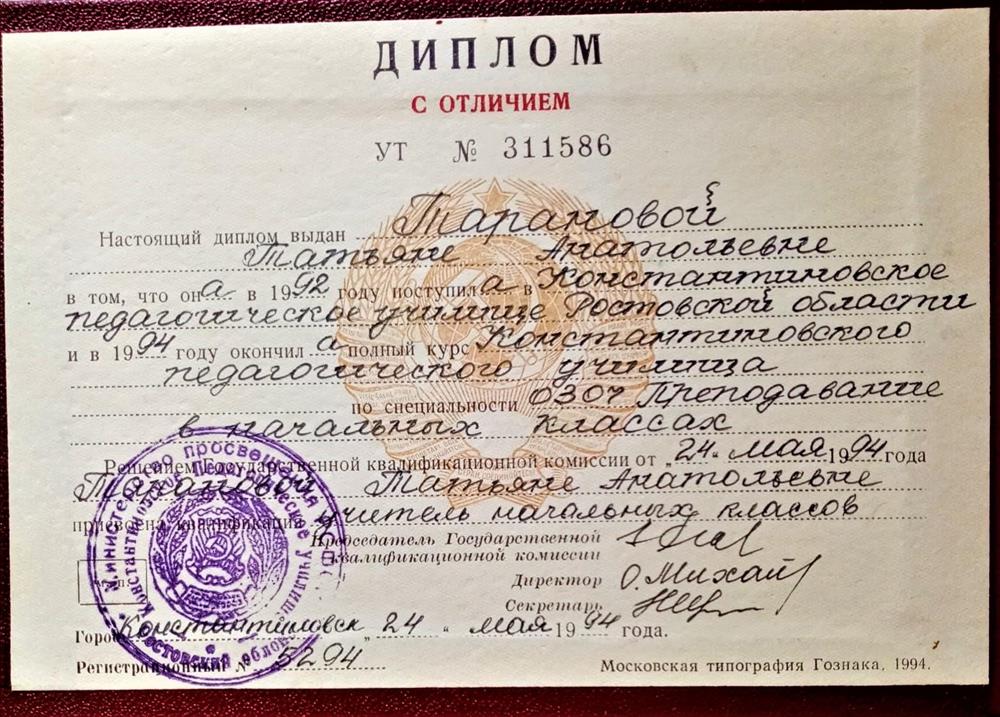 ДИПЛОМ
С ОТЛИЧИЕМ
УТ № 311586
Настоящий диплом выдан Тарановой
Татьяне Анатольевне
в том, что она в 1992 году поступила в Константиновское
педагогическое училище Ростовской области
и в 1994 году окончила полный курс Константиновского
педагогического училища
по специальности 0304 Преподавание
в начальных классах
Решением Государственной квалификационной комиссии от „24“ мая 1994 года
Тарановой Татьяне Анатольевне
присвоена квалификация учитель начальных классов
Председатель Государственной
квалификационной комиссии
Директор О.Михай
Секретарь
Город Константиновск „24“ мая 1994 года.
Регистрационный № 5294
Московская типография Гознака, 1994.
Министерство просвещения
Константиновское Педагогическое училище
Ростовская обл